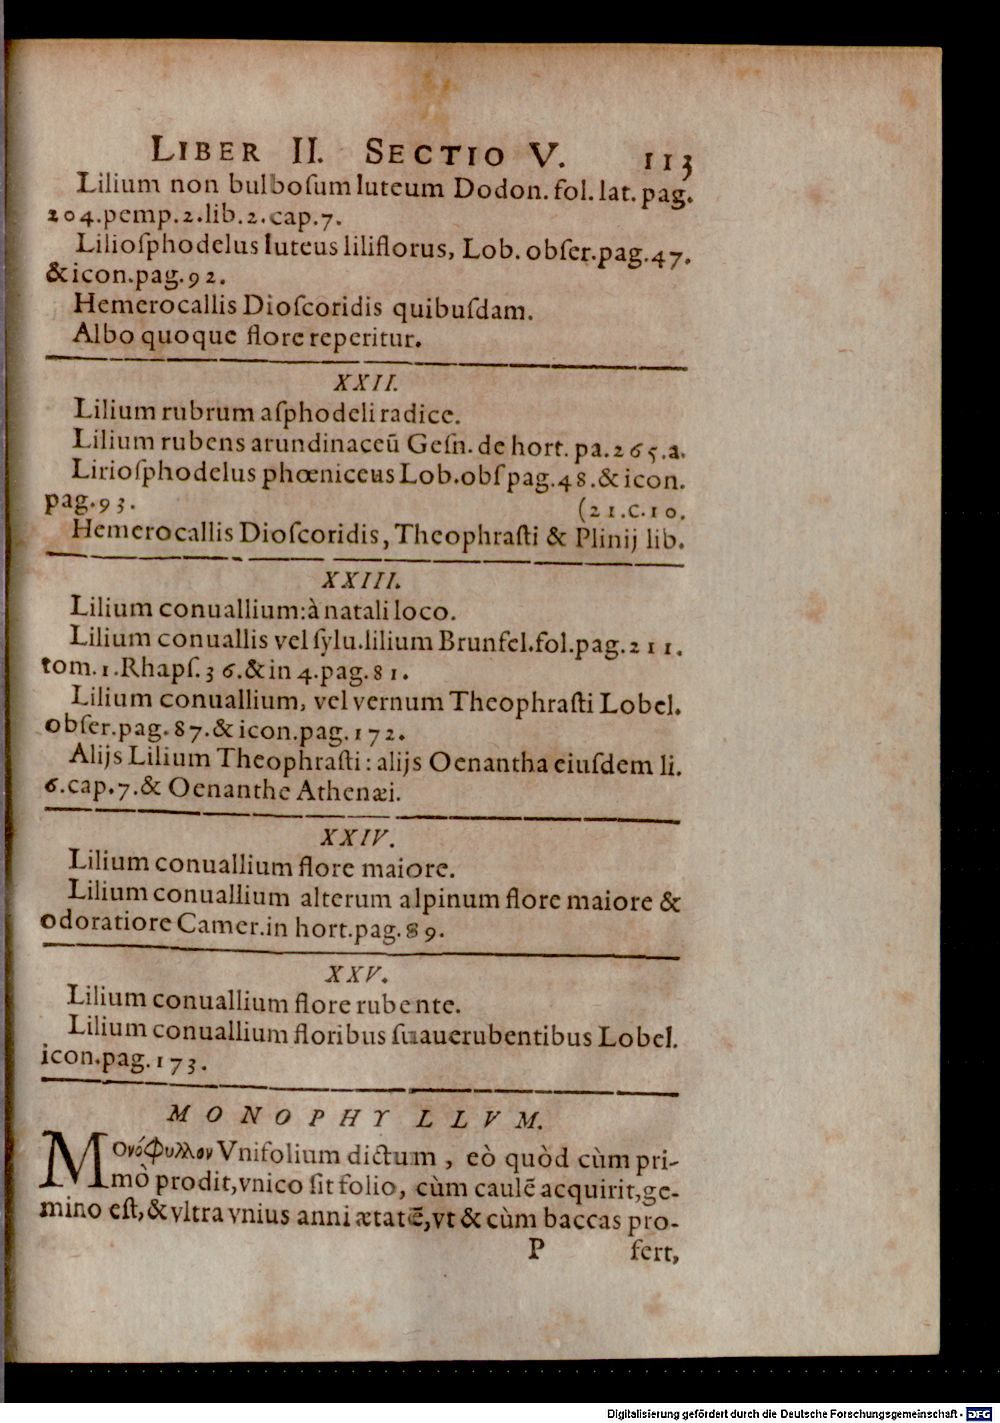 LIBER II. SECTIO V. 113
Lilium non bulboſum luteum Dodon. fol. lat. pag.
204.pemp.2.lib.2.cap.7.
Lilioſphodelus luteus liliflorus, Lob. obſer.pag.47.
&icon.pag.92.
Hemerocallis Dioſcoridis quibuſdam.
Albo quoque flore reperitur.
XXII.
Lilium rubrum aſphodeli radice.
Lilium rubens arundinaceū Geſn. de hort. pa.265.a.
Lirioſphodelus phœniceus Lob.obſ pag.48.&icon.
pag.93. (21.c.10.
Hemerocallis Dioſcoridis, Theophraſti & Plinij lib.
XXIII.
Lilium conuallium:à natali loco.
Lilium conuallis vel ſylu.lilium Brunfel.fol.pag.211.
tom.1.Rhapſ.36.&in 4.pag.81.
Lilium conuallium, vel vernum Theophraſti Lobel.
obſer.pag.87.&icon.pag.172.
Alijs Lilium Theophraſti: alijs Oenantha eiuſdem li.
6.cap.7.& Oenanthe Athenæi.
XXIV.
Lilium conuallium flore maiore.
Lilium conuallium alterum alpinum flore maiore &
odoratiore Camer.in hort.pag.89.
XXV.
Lilium conuallium flore rubente.
Lilium conuallium floribus ſuauerubentibus Lobel.
icon.pag.173.
MONOPHYLLVM.
Μονόφυλλον Vnifolium dictum, eò quòd cùm pri-
mò prodit,vnico ſit folio, cùm caulē acquirit,ge-
mino eſt,& vltra vnius anni ætatē,vt & cùm baccas pro-
P fert,
Digitalisierung gefördert durch die Deutsche Forschungsgemeinschaft - DFG